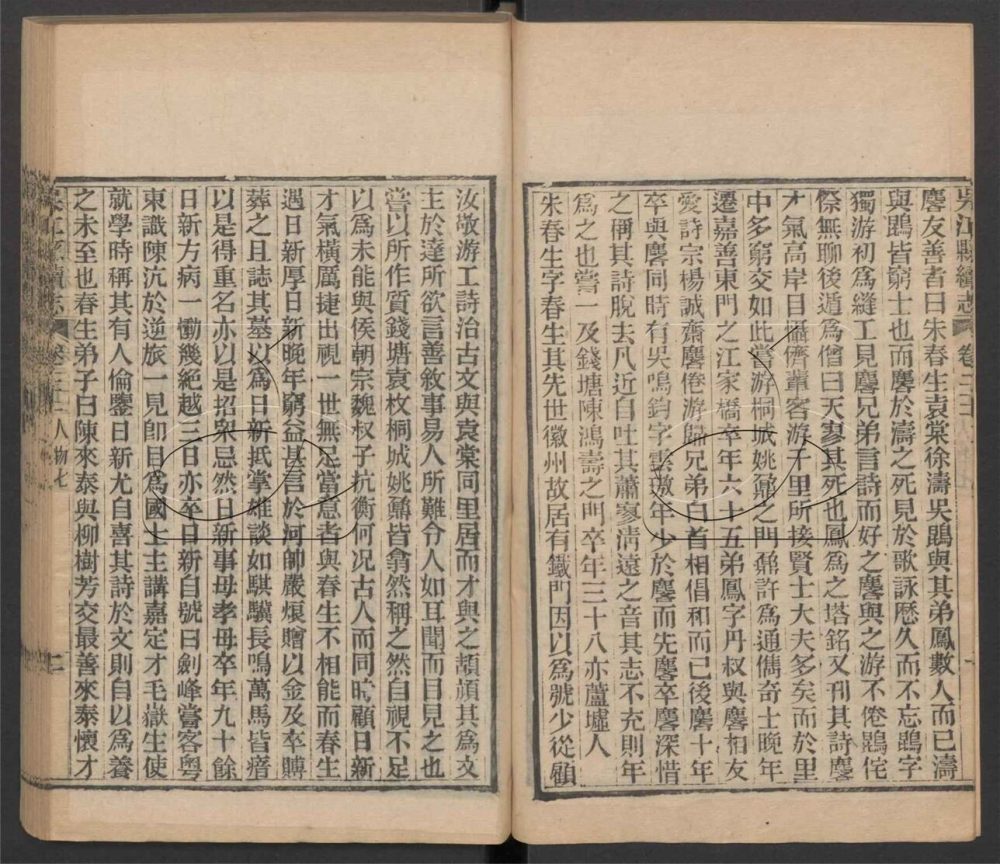 吳江縣續志 卷二十二
麐友善者曰朱春生袁棠徐濤吳鶤與其弟鳳數人而已濤
與鶤皆窮士也而麐於濤之死見於歌詠歷久而不忘鶤字
獨游初爲縫工見麐兄弟言詩而好之麐與之游不倦鶤侘
傺無聊後遁爲僧曰天寥其死也鳳爲之塔銘又刊其詩麐
才氣高岸目懾儕輩客游千里所接賢士大夫多矣而於里
中多窮交如此嘗游桐城姚鼐之門鼐許爲通儁奇士晚年
遷嘉善東門之江家橋卒年六十五弟鳳字丹叔與麐相友
愛詩宗楊誠齋麐倦游歸兄弟白首相倡和而已後麐十年
卒與麐同時有吳鳴鈞字雲璈年少於麐而先麐卒麐深惜
之稱其詩脫去凡近自吐其蕭寥淸遠之音其志不充則年
爲之也嘗一及錢塘陳鴻壽之門卒年三十八亦蘆墟人
朱春生字春生其先世徽州故居有鐵門因以爲號少從顧
汝敬游工詩治古文與袁棠同里居而才與之頡頏其爲文
主於達所欲言善敘事易人所難令人如耳聞而目見之也
嘗以所作質錢塘袁枚桐城姚鼐皆翕然稱之然自視不足
以爲未能與侯朝宗魏叔子抗衡何况古人而同時顧日新
才氣橫厲捷出視一世無足當意者與春生不相能而春生
遇日新厚日新晚年窮益甚言於河帥嚴烺贈以金及卒賻
葬之且誌其墓以爲日新抵掌雄談如騏驥長鳴萬馬皆瘖
以是得重名亦以是招衆忌然日新事母孝母卒年九十餘
日新方病一慟幾絕越三日亦卒日新自號曰劍峰嘗客粵
東識陳沆於逆旅一見卽目爲國士主講嘉定才毛嶽生使
就學時稱其有人倫鑒日新尤自喜其詩於文則自以爲養
之未至也春生弟子曰陳來泰與柳樹芳交最善來泰懷才
卷二十二 人物七 二